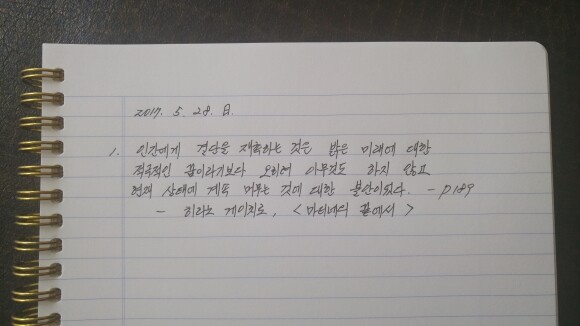 2017. 5. 28. 일.
1. 인간에게 결단을 재촉하는 것은 밝은 미래에 대한
적극적인 꿈이라기보다 오히려 아무것도 하지 않고
현재 상태에 계속 머무는 것에 대한 불안이었다. - p189
- 히라노 게이치로, <마티네의 끝에서>